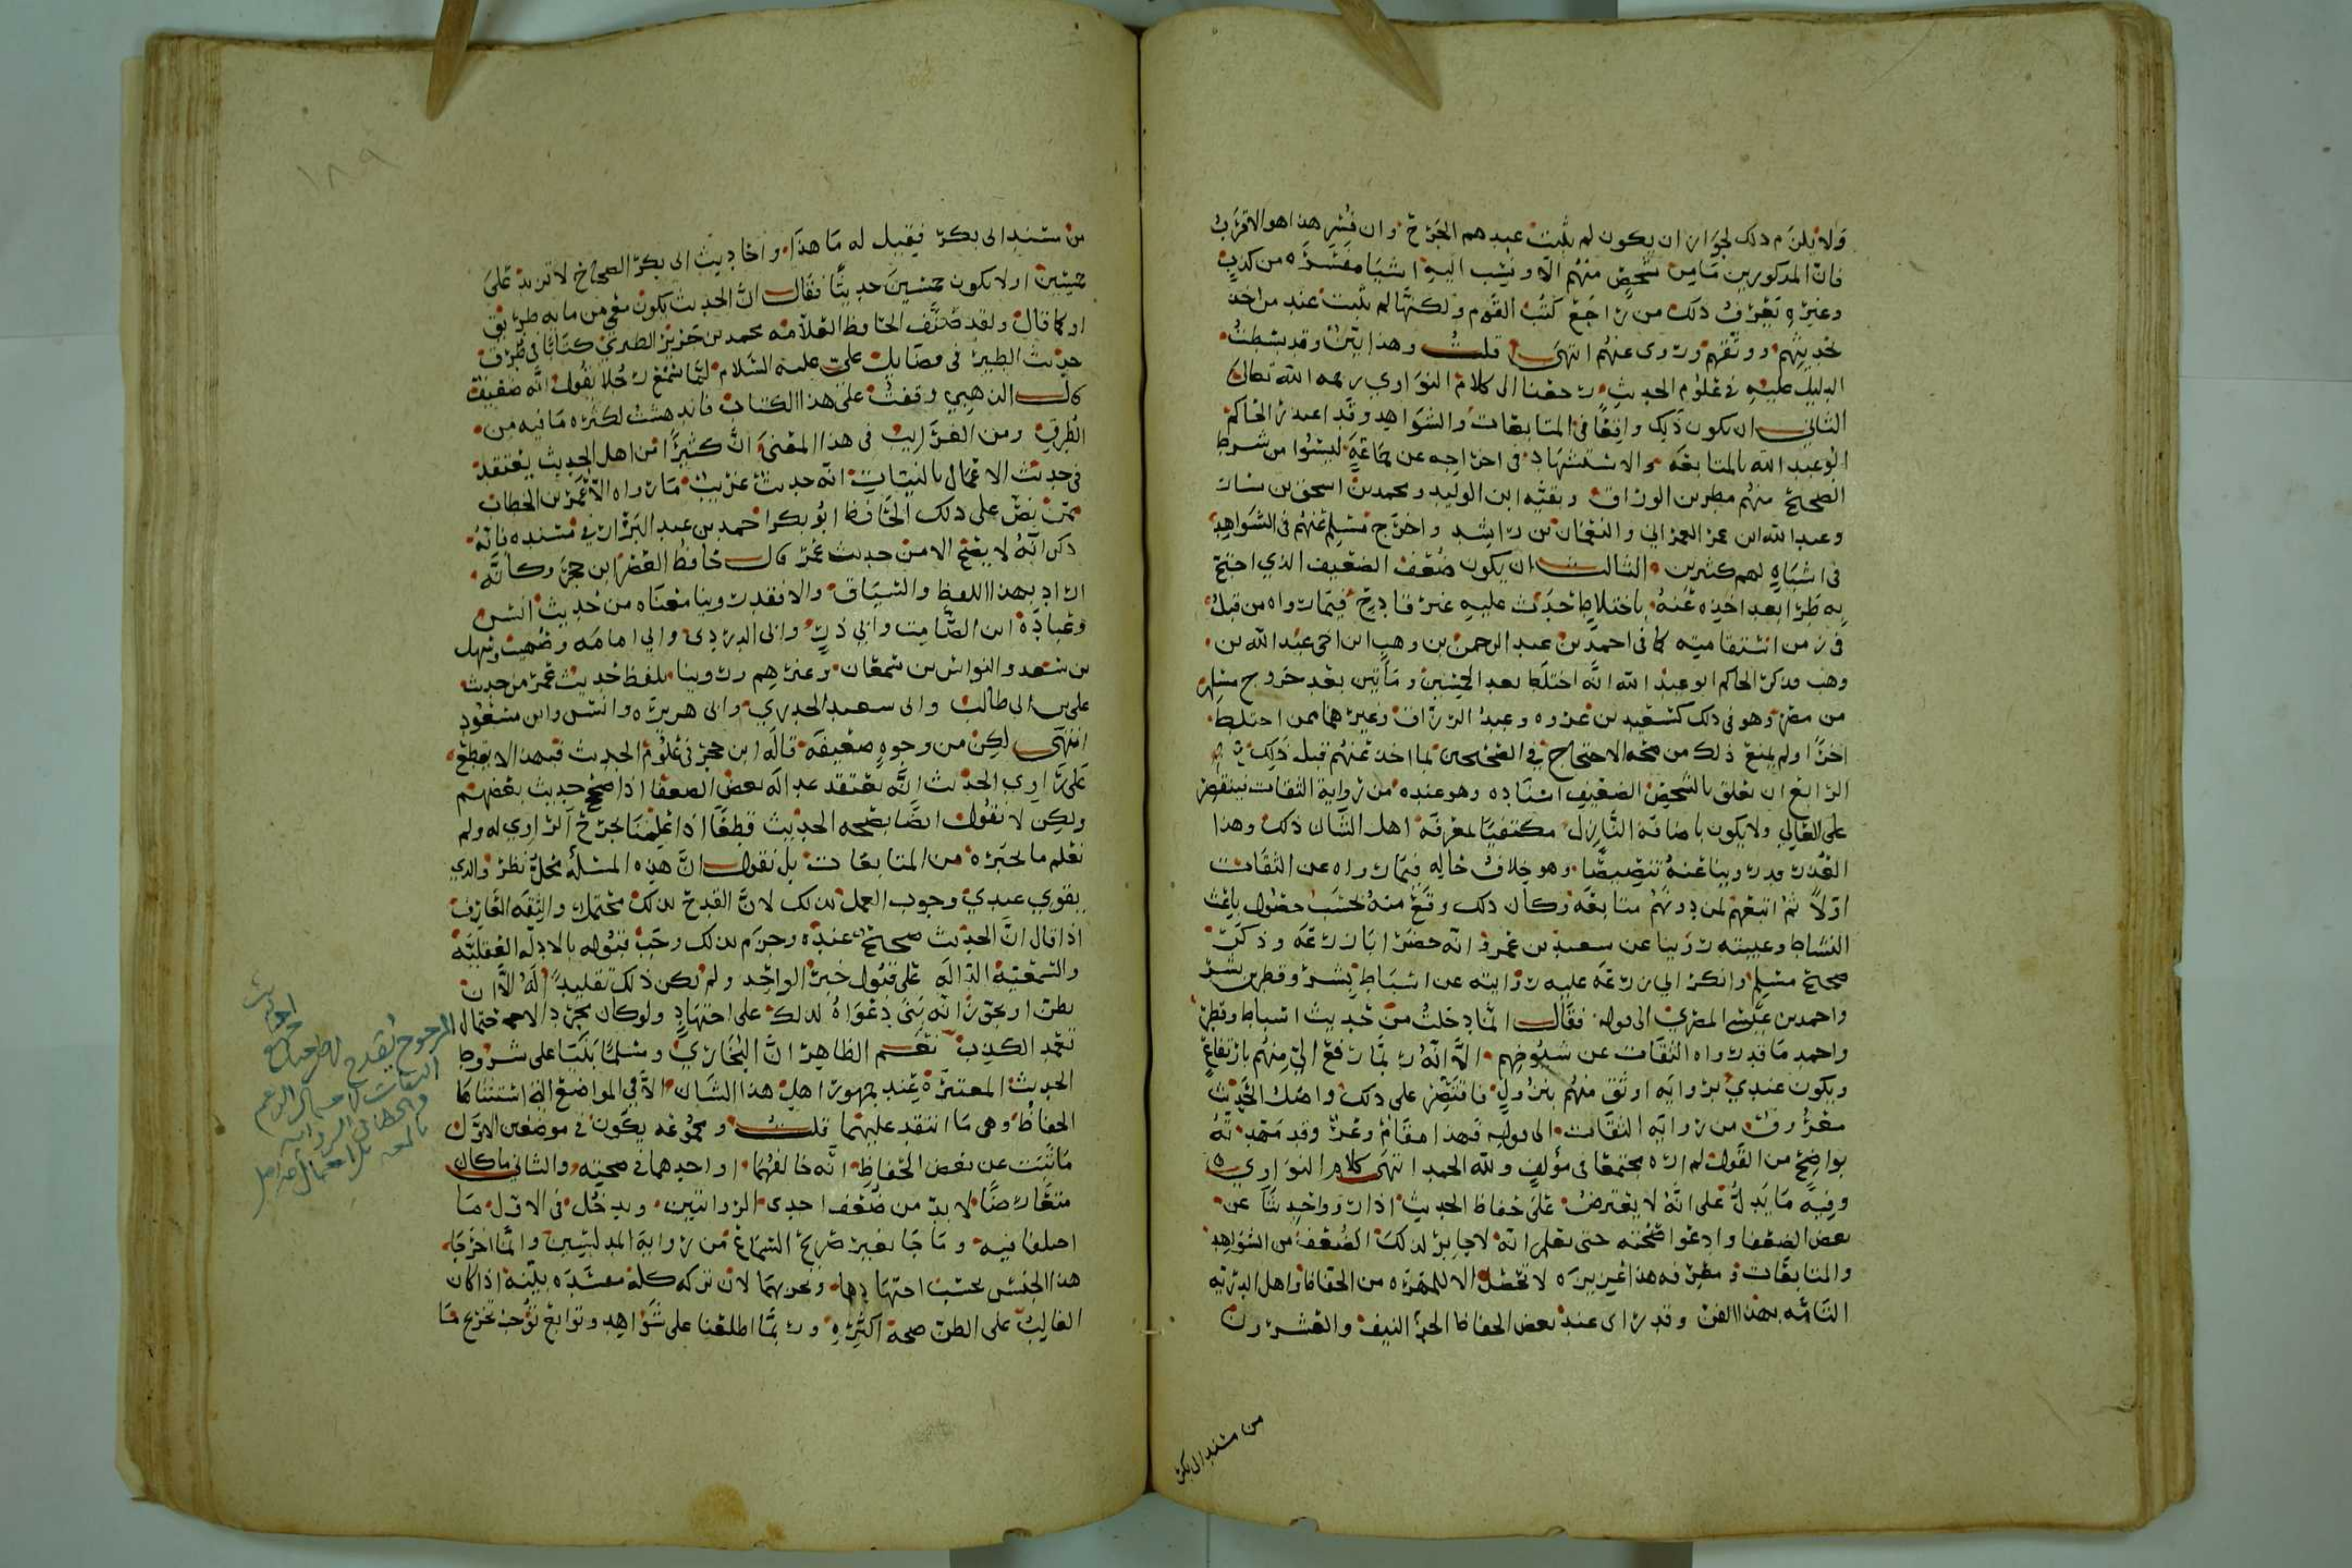 ولا يلزم ذلك لجواز ان يكون لم يثبت عندهم الجرح وان فسر هذا هو الاقرب
فان المذكورين ما من شخص منهم الا ونسب اليه اشيا مفسره من كذب
وغيره يعرف ذلك من راجع كتب القوم ولكنها لم تثبت عند من اخذ
حديثهم ووثقهم وروى عنهم انتهى قلت وهذا بين وقد بسطت
الدليل عليه في علوم الحديث رجعنا الى كلام النواوي رحمه الله تعالى
الثاني ان يكون ذلك واقعا في المتابعات والشواهد وقد اعتذر الحاكم
ابو عبد الله بالمتابعه والاستشهاد في اخراجه عن جماعة ليسوا من شرط
الصحيح منهم مطر بن الوراق وبقيه ابن الوليد ومحمد بن اسحق بن يسار
وعبد الله ابن عمر العمراني والنعمان بن راشد واخرج مسلم عنهم في الشواهد
في اشباه لهم كثيرين الثالث ان يكون ضعف الضعيف الذي احتج
به طرا بعد اخذه عنه باختلاط حدث عليه غير قادح فيما رواه من قبل
في زمن استقامته كما في احمد بن عبد الرحمن بن وهب ابن اخي عبد الله بن
وهب فذكر الحاكم ابو عبد الله انه اختلط بعد الخمسين ومأتين بعد خروج مسلم
من مصر وهو في ذلك كسعيد بن عروه وعبد الرزاق وغيرهما ممن اختلط
اخرا ولم يمنع ذلك من صحه الاحتجاج في الصحيحين بما اخذ عنهم قبل ذلك
الرابع ان يعلق بالشخص الضعيف اسناده وهو عنده من رواية الثقات فيقتصر
على العالي ولا يكون باضافة النازل مكتفيا بمعرفة اهل الشان ذلك وهذا
العذر قد روينا عنه تنصيصا وهو خلاف حاله فيما رواه عن الثقات
اولا ثم اتبعهم لمن دونهم متابعه وكان ذلك وقع منه بحسب حضور باعث
النشاط وغيبته روينا عن سعيد بن عمرو انه حضر ابا زرعه وذكر
صحيح مسلم وانكر ابي زرعه عليه روايته عن اسباط بن بشر وقطن بن بشر
واحمد بن عيسى المصري الى قوله فقال انما ادخلت من حديث اسباط وقطن
واحمد ما قد رواه الثقات عن شيوخهم الا انه ربما رفع الي منهم بارتفاع
ويكون عندي بروايه اوثق منهم بنزول فاقتصر على ذلك واصل الحديث
معروف من روايه الثقات الى قوله فهذا مقام وعر وقد مهدته
بواضح من القول لم اره مجتمعا في مؤلف ولله الحمد انتهى كلام النواوي
وفيه ما يدل على انه لا يعترض على حفاظ الحديث اذا رووا حديثا عن
بعض الضعفا وادعوا صحته حتى يعلم انه لا جابر لذلك الضعف من الشواهد
والمتابعات ومعرفه هذا عزيزه لا تحصل الا للمهره من الحفاظ اهل الدريه
التامه بهذا الفن وقد راى عند بعض الحفاظ الجزا النيف والعشرون
من مسند ابي بكر
١٨٩
من مسند ابي بكر فقيل له ما هذا واحاديث ابي بكر الصحاح لا تزيد على
خمسين او لا يكون خمسين حديثا فقال ان الحديث يكون معي من مايه طريق
او كما قال ولقد صنف الحافظ العلامه محمد بن جرير الطبري كتابا في طرق
حديث الطير في فضايل علي عليه السلام لما سمع رجلا يقول انه ضعيف
قال الذهبي وقفت على هذا الكتاب فاندهشت لكثره ما فيه من
الطرق ومن الغرايب في هذا المعنى ان كثيرا من اهل الحديث يعتقد
في حديث الاعمال بالنيات انه حديث غريب ما رواه الا عمر بن الخطاب
ممن نص على ذلك الحافظ ابو بكر احمد بن عبد البزار في مسنده فانه
ذكر انه لا يصح الا من حديث عمر قال حافظ العصر ابن حجر وكانه
اراد بهذا اللفظ والسياق والا فقد روينا معناه من حديث انس
وعبادة ابن الصامت وابي ذر وابي الدردى وابي امامه وصهيب وسهل
بن سعد والنواس بن سمعان وغيرهم وروينا بلفظ حديث عمر من حديث
علي بن ابي طالب وابي سعيد الخدري وابي هريره وانس وابن مسعود
انتهى لكن من وجوه ضعيفه قاله ابن حجر في علوم الحديث فبهذا لا يقطع
على راوي الحديث انه يعتقد عداله بعض الضعفا اذا صحح حديث بعضهم
ولكن لا نقول ايضا بصحه الحديث قطعا اذا علمنا بجرح الراوي له ولم
نعلم ما يجبره من المتابعات بل نقول ان هذه المسئله محل نظر والذي
يقوى عندي وجوب العمل بذلك لان القدح بذلك محتمل والثقه العارف
اذا قال ان الحديث صحيح عنده وجزم بذلك وجب قبوله بالادله العقليه
والسمعيه الداله على قبول خبر الواحد ولم يكن ذلك تقليدا له الا ان
يظن او يحوز انه بنى دعواه لذلك على اجتهاد ولو كان مجرد الاحتمال
المرجوح يقدح
تعمد الكذب نعم الظاهر ان البخاري ومسلما بنيا على شروط
الحديث المعتبره عند جمهور اهل هذا الشان الا في المواضع التي استثناها
الحفاظ وهي ما انتقد عليهما قلت ومجموعه يكون في موضعين الاول
ما ثبت عن بعض الحفاظ انه خالفهما او احدهما في صحته والثاني ما كان
متعارضا لا بد من ضعف احدى الروايتين ويدخل في الاول ما
اختلفا فيه وما جا بغير صريح السماع من رواية المدلسين وانما اخرجا
هذا الجنس بحسب اجتهادهما ونحن بهما لان تركه كله مفسده بينه اذا كان
الغالب على الظن صحة اكثره وربما اطلعنا على شواهد وتوابع توجب تخريج ما